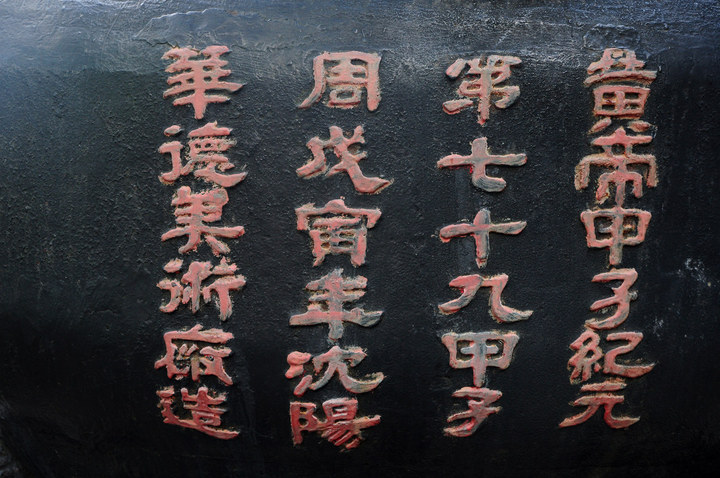 黃帝甲子紀元
第七十九甲子
周戊寅年沈陽
華德美術厰造